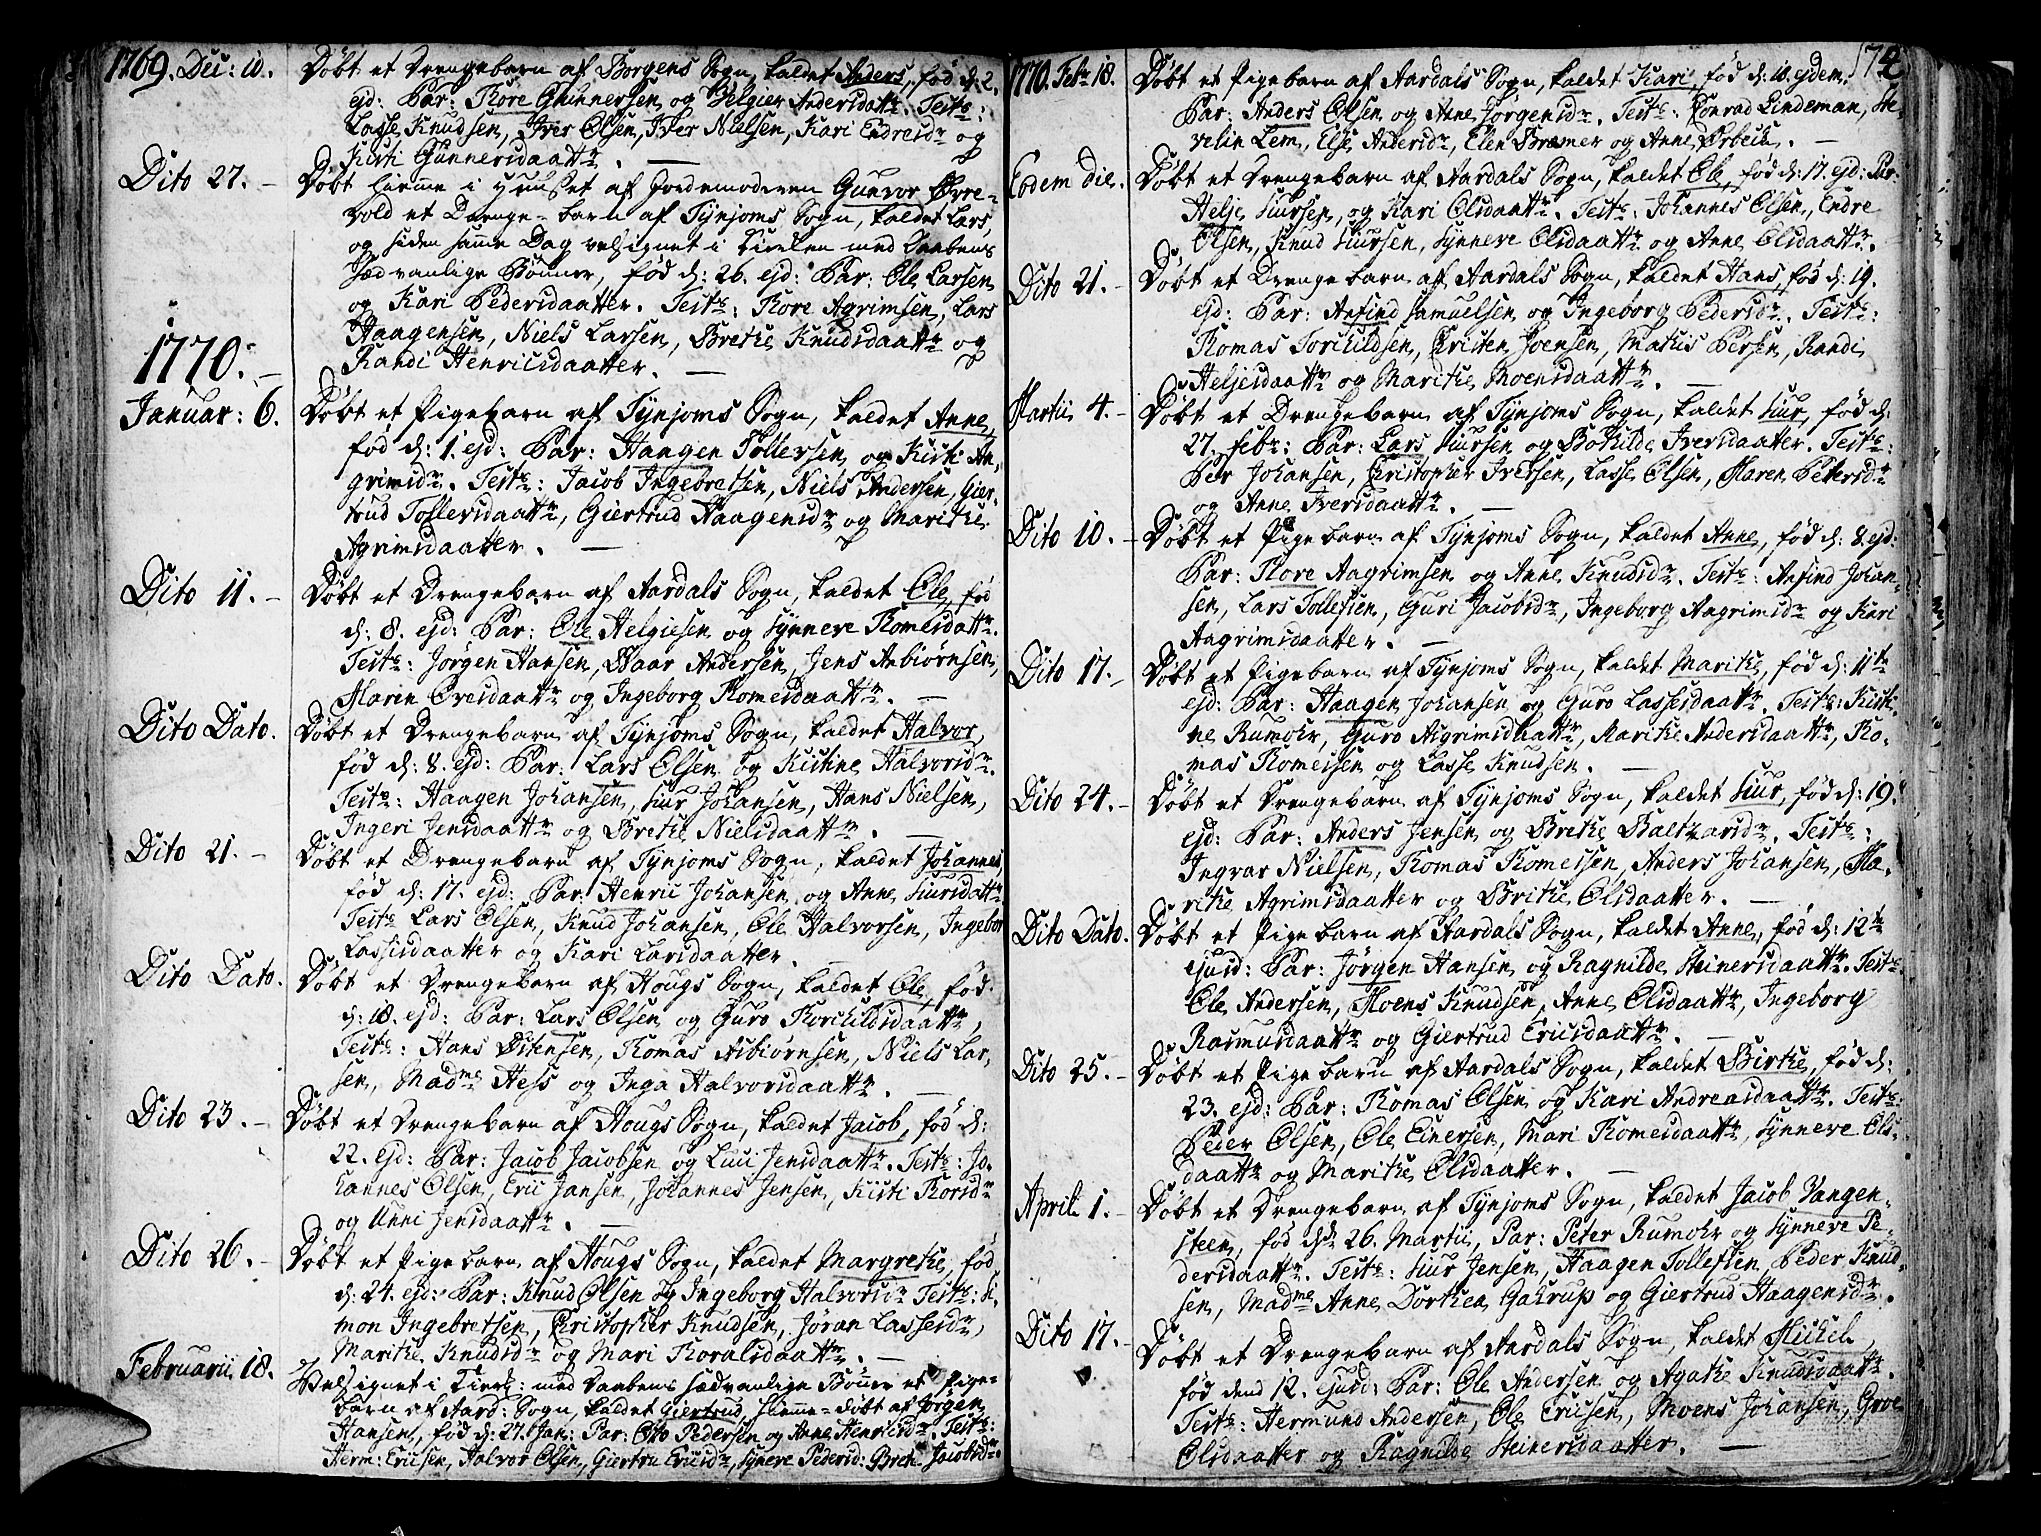 1769. Dec: 10. Døbt et Drengebarn af Borgens Sogn, kaldet Anders, fød d: 2.
ejd: Par: Tore Gunnersen og Helgier Andersdattr. Testc:
Lasse Knudsen, Iver Olsen, Iver Nielsen, Kari Endresdr og
Kisti Gunnersdaattr.
Dito 27. - Døbt hiemme i Huuset af Jordemoderen Gunvor Øvre-
vold et Drenge-barn af Tynjoms Sogn, kaldet Lars,
og siden samme Dag velsignet i Kirken med Daabens
sædvanlige Bønner, fød d: 26. ejd: Par: Ole Larsen
og Kari Pedersdaatter. Testc: Tore Agrimsen, Lars
Haagensen, Niels Larsen, Brethe Knudsdaattr og
Randi Henricsdaatter.
1770.
Januar: 6. Døbt et Pigebarn af Tynjoms Sogn, kaldet Anne,
fød d: 1. ejd: Par: Haagen Tollefsen og Kisti An-
grimsdr. Testc: Jacob Ingebretsen, Niels Andersen, Gier-
trud Tollersdaattr, Giertrud Haagensdr og Marithe
Agrimsdaatter.
Dito 11. - Døbt et Drengebarn af Aardals Sogn, kaldet Ole, fød
d: 8. ejd: Par: Ole Helgiesen og Synneve Tomesdattr.
Testc: Jørgen Hansen, Haar Andersen, Jens Anbiørnsen,
Maren Ovesdaattr og Ingeborg Tomesdaattr.
Dito Dato. Døbt et Drengebarn af Tynjoms Sogn, kaldet Halvor,
fød d: 8. ejd: Par: Lars Olsen og Kisthne Halvorsdr.
Testc: Haagen Johansen, Siur Johansen, Hans Nielsen,
Ingeri Jensdaattr og Brethe Nielsdaattr.
Dito 21. - Døbt et Drengebarn af Tynjoms Sogn, kaldet Johannes,
fød d: 17. ejd: Par: Henric Johansen og Anne Siursdattr
Testc Lars Olsen, Knud Johansen, Ole Halvorsen, Ingebor
Lassesdaatter og Kari Larsdaatter.
Dito Dato. Døbt et Drengebarn af Hougs Sogn, kaldet Ole, fød
d: 18. ejd: Par: Lars Olsen og Guro Torchildsdaattr,
Testc: Hans Ottensen, Tomas Asbiørnsen, Niels Lar-
sen, Madme Hess og Inga Halvorsdaattr.
Dito 23. - Døbt et Drengebarn af Hougs Sogn, kaldet Jacob, fød d:
22. ejd: Par: Jacob Jacobsen og Luci Jensdaattr. Testc: Jo-
hannes Olsen, Eric Jansen, Johannes Jensen, Kisti Torsdr
og Unni Jensdaattr.
Dito 26. - Døbt et Pigebarn af Hougs Sogn, kaldet Margrethe, fød
d: 24. ejd: Par: Knud Olsen og Ingeborg Halvorsdr Testc: Si-
mon Ingebretsen, Christopher Knudsen, Joran Lassesdr,
Marithe Knudsdr og Mari Toralsdaattr.
Februarii 18. Velsignet i Kirch: med Daabens sædvanlige Bønner et Pige-
barn af Aard: Sogn, kaldet Giertrud, hiemme-døbt af Jørgen
Hansen, fød d: 27. Jan: Par: Otto Pedersen og Anne Henricsdr. Testc:
Herm: Ericsen, Halvor Olsen, Giertru Ericsdr, Synneve Pedersd: Breth Jacobsdr.
174
1770. Febr 18. Døbt et Pigebarn af Aardals Sogn, kaldet Kari, fød d: 18. ejdem.
Par: Anders Olsen og Anne Jørgensdr. Testc: Conrad Lindeman, Se-
velin Lem, Else Andersdr, Elen Bræmer og Anne Ørbech.
Eodem die. Døbt et Drengebarn af Aardals Sogn, kaldet Ole, fød d: 17. ejd: Par:
Helje Siursen, og Kari Olsdaattr. Testc: Johannes Olsen, Endre
Olsen, Knud Siursen, Synneve Olsdaattr og Anne Olsdaattr.
Dito 21. - Døbt et Drengebarn af Aardals Sogn, kaldet Hans, fød d: 19.
ejd: Par: Anfind Samuelsen og Ingeborg Pedersdr. Testc:
Tomas Torchildsen, Cristen Joensen, Mathis Persen, Randi
Heljesdaattr og Marithe Moensdaattr.
Martii 4. - Døbt et Drengebarn af Tynjoms Sogn, kaldet Siur, fød d:
27. febr: Par: Lars Siursen og Bothilde Iversdaatter. Testc:
Per Johansen, Christopher Iversen, Lasse Olsen, Maren Pettersdr
og Anne Iversdaattr.
Dito 10. - Døbt et Pigebarn af Tynjoms Sogn, kaldet Anne, fød d: 8. ejd:
Par: Tore Aagrimsen og Anne Knudsdr. Testc: Anfind Johan-
sen, Lars Tollefsen, Guri Jacobsdr, Ingeborg Aagrimsdr og Kari
Aagrimsdaatter.
Dito 17. - Døbt et Pigebarn af Tynjoms Sogn, kaldet Marithe, fød d: 11te
ejd: Par: Haagen Johansen og Guro Lassesdaattr. Testc: Kisti-
ne Rumohr, Guro Agrimsdaattr, Marithe Andersdaattr, To-
mas Tomessen og Lasse Knudsen.
Dito 24. - Døbt et Drengebarn af Tynjoms Sogn, kaldet Siur, fød d: 19.
ejd: Par: Anders Jensen og Brethe Baltzarsdr. Testc:
Ingvar Nielsen, Tomas Tomessen, Anders Johansen, Ma-
rithe Agrimsdaatter og Brithe Olsdaatter.
Dito Dato. Døbt et Pigebarn af Aardals Sogn, kaldet Anne, fød d: 12te
ejusd: Par: Jørgen Hansen og Ragnilde Steinersdaattr. Testc:
Ole Andersen, Moens Knudsen, Anne Olsdaattr, Ingeborg
Rasmusdaattr og Giertrud Ericsdaattr.
Dito 25. - Døbt et Pigebarn af Aardals Sogn, kaldet Birthe, fød d:
23. ejd: Par: Tomas Olsen og Kari Andreasdaattr. Testc:
Peder Olsen, Ole Einersen, Mari Tomesdaattr, Synneve Ols-
daattr og Marithe Olsdaatter.
April: 1. - Døbt et Drengebarn af Tynjoms Sogn, kaldet Jacob Vangen-
steen, fød dn 26. Martii, Par: Peter Rumohr og Synneve Pe-
dersdaattr. Testc: Siur Jensen, Haagen Tollefsen, Peder Knud-
sen, Madme Anne Dorthea Gahrup og Giertrud Haagensdr.
Dito 17. - Døbt et Drengebarn af Aardals Sogn, kaldet Mickel,
fød dend 12. ejusd: Par: Ole Andersen og Agathe Knudsdaattr.
Testc: Hermund Andersen, Ole Ericsen, Moens Johansen, Groe
Olsdaatter og Ragnilde Steinersdaatter.